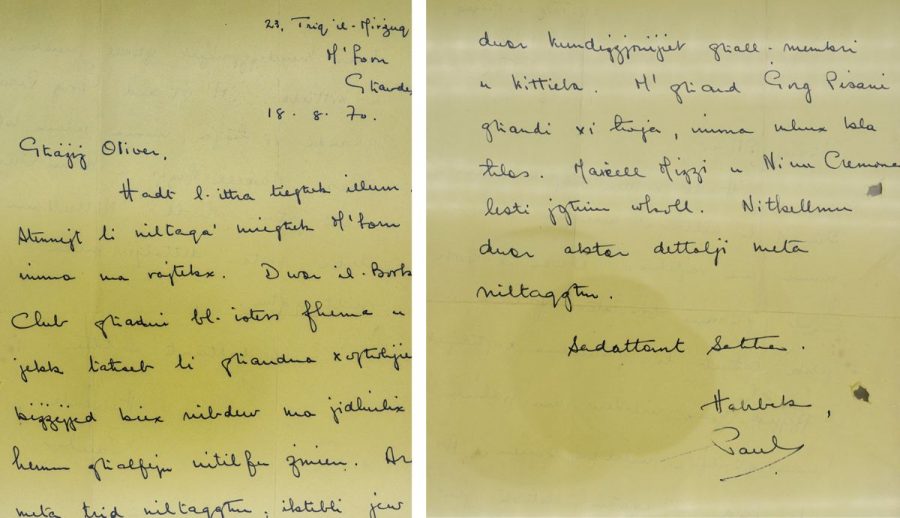 23, Triq il-Mirżuq
M'Forn
Għawde
18. 8. 70.
Għażiż Oliver,
Ħadt l-ittra tiegħek illum.
Stennejt li niltaqa' miegħek M'Forn
imma ma rajtekx. Dwar il-Book
Club għadni bl-istess fehma u
jekk taħseb li għandna xogħlijie
biżżejjed biex nibdew ma jidhirlix
hemm għalfejn nitilfu żmien. Ar
meta trid niltaqgħu; iktibli jew
dwar kundizzjonijiet għall-membri
u kittieba. M' għand Ġorġ Pisani
għandi xi ħaġa, imma mhux bla
ħlas. Marcell Mizzi u Ninu Cremona
lesti jgħinu wkoll. Nitkellmu
dwar aktar dettalji meta
niltaqgħu.
Sadattant Saħħa.
Ħabibek,
Paul